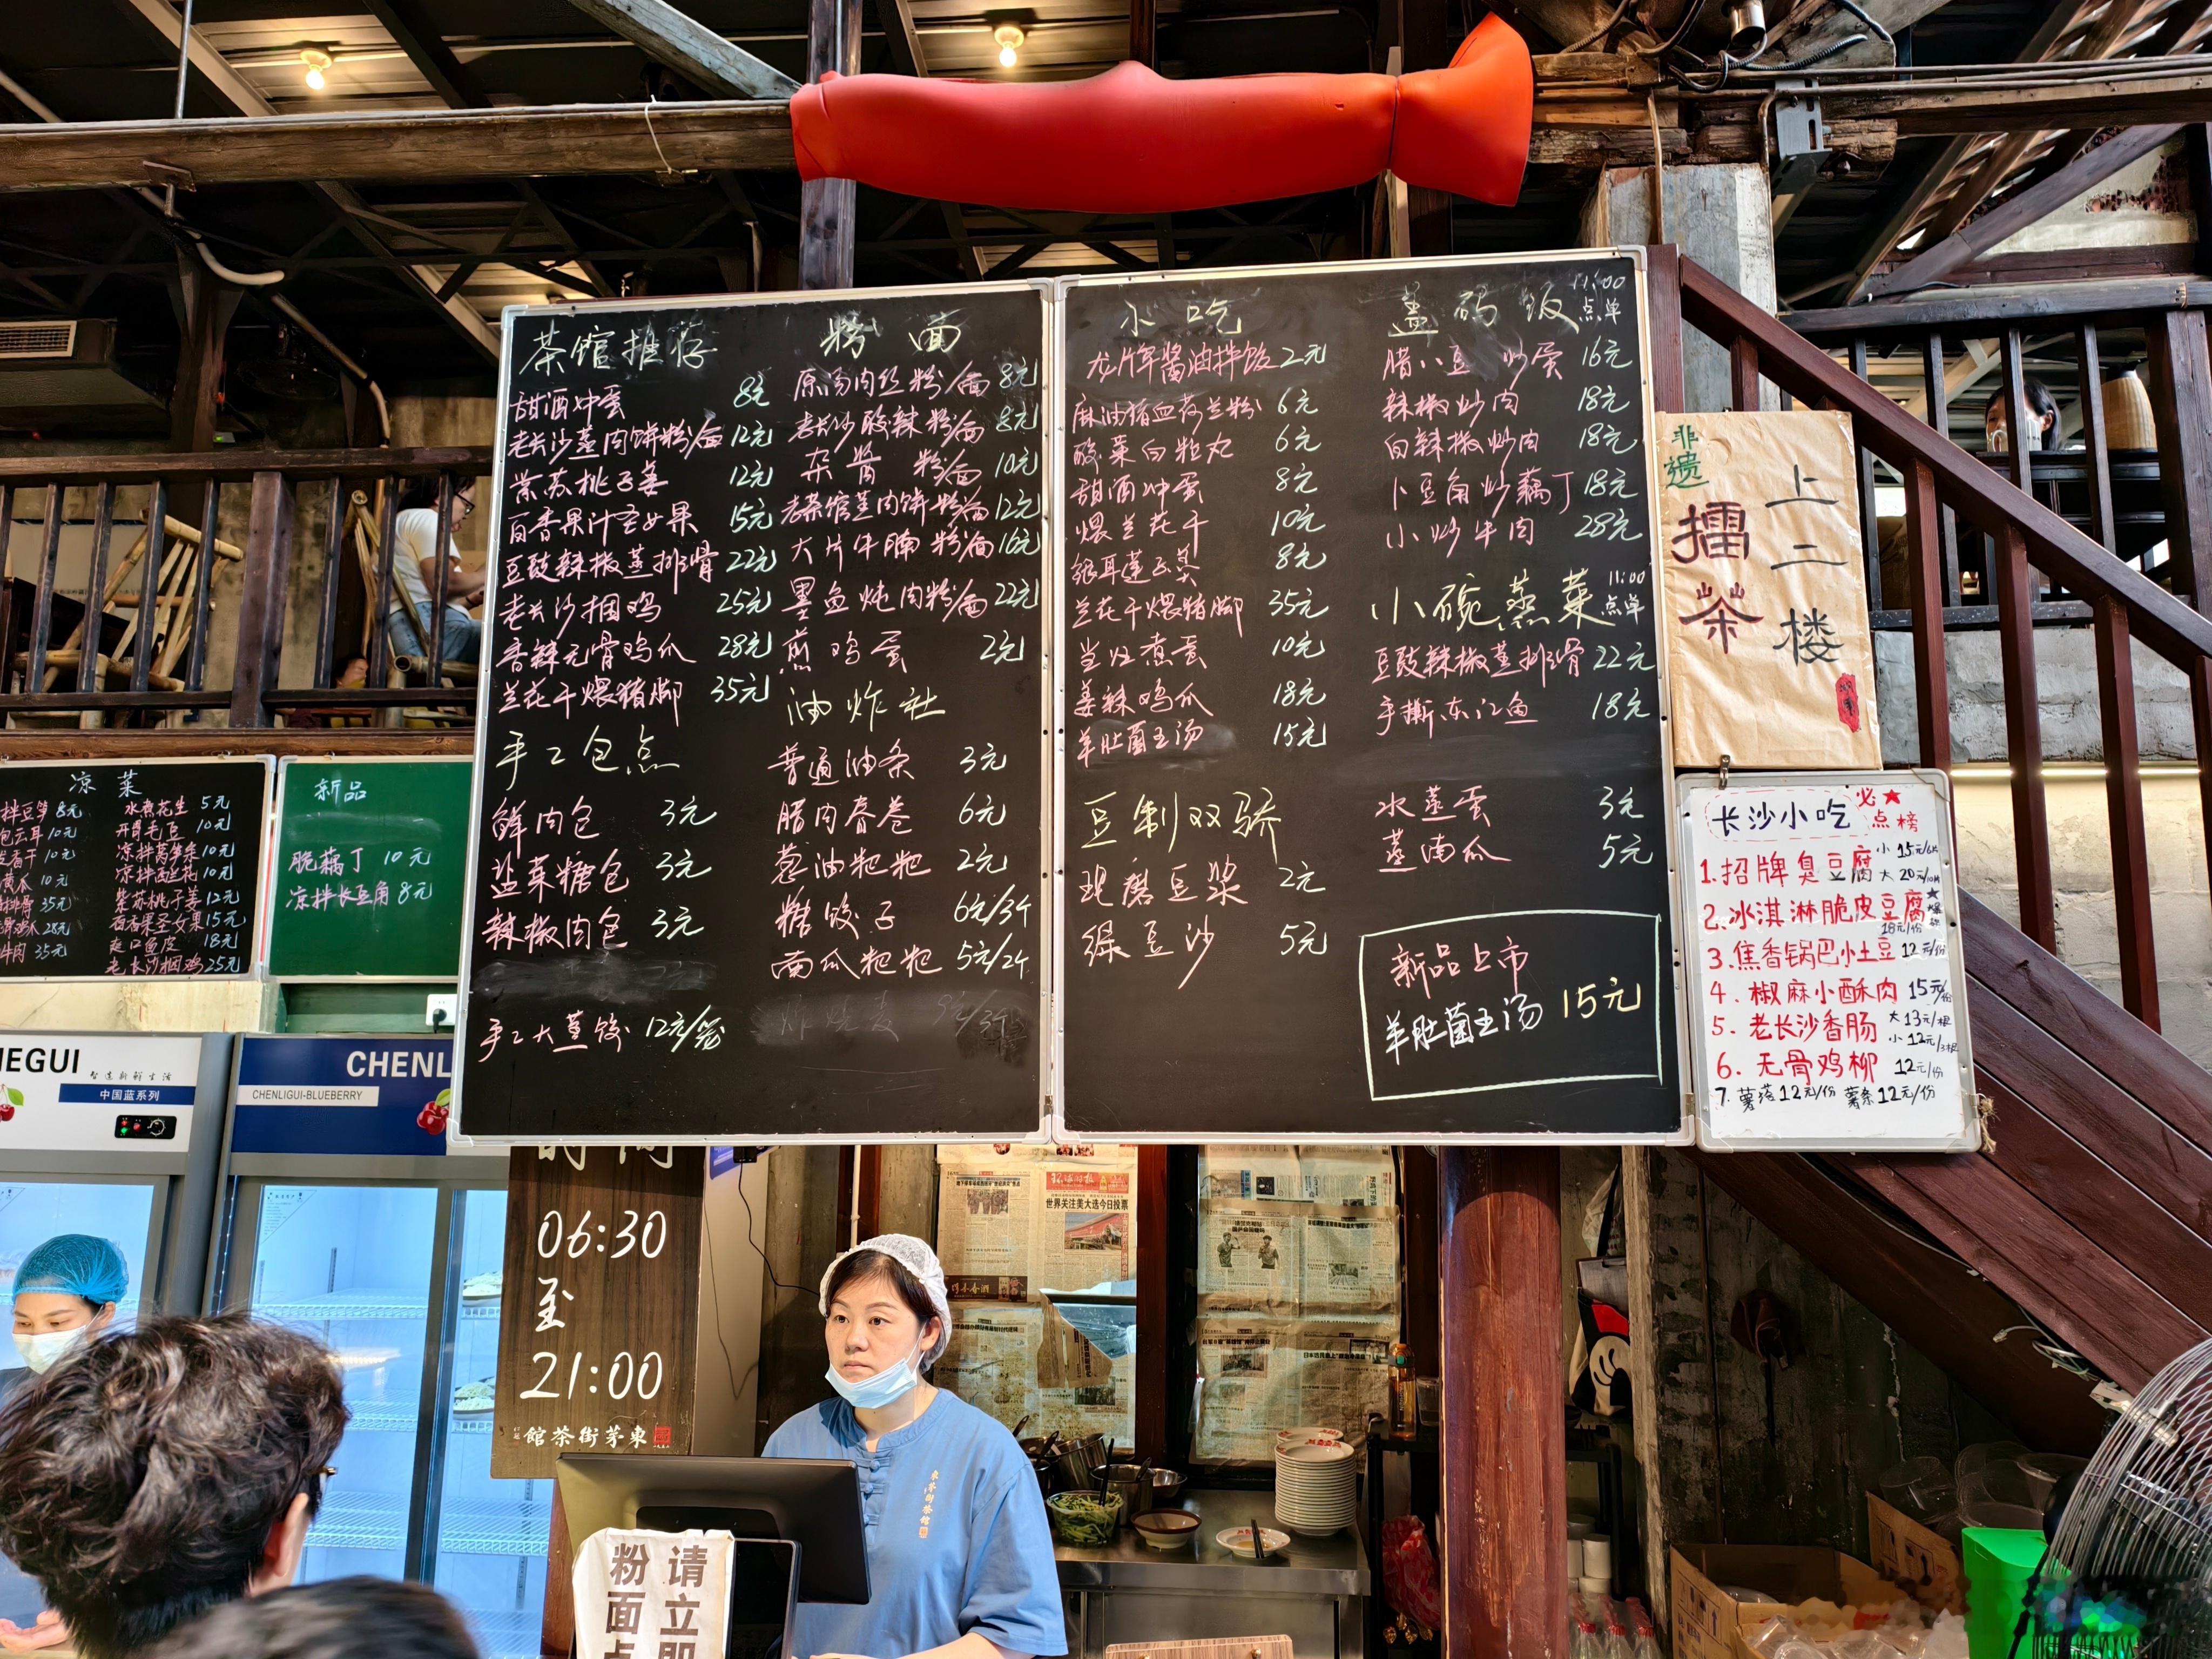 茶馆推荐
甜酒冲蛋 8元
老长沙蒸肉饼粉/面 12元
紫苏桃子姜 12元
百香果汁圣女果 15元
豆豉辣椒蒸排骨 22元
老长沙捆鸡 25元
香辣无骨鸡爪 28元
兰花干煨猪脚 35元
手工包点
鲜肉包 3元
盐菜糖包 3元
辣椒肉包 3元
手工大蒸饺 12元/笼
粉面
原汤肉丝粉/面 8元
老长沙酸辣粉/面 8元
杂酱粉/面 10元
老茶馆蒸肉饼粉/面 12元
大片牛腩粉/面 16元
墨鱼炖肉粉/面 22元
煎鸡蛋 2元
油炸社
普通油条 3元
腊肉春卷 6元
葱油粑粑 2元
糖饺子 6元/3个
南瓜粑粑 5元/2个
炸烧麦 9元/3个
小吃
龙牌酱油拌饭 2元
麻油猪血荷兰粉 6元
酸菜白粒丸 6元
甜酒冲蛋 8元
煨兰花干 10元
银耳莲子羹 8元
兰花干煨猪脚 35元
当灶煮蛋 10元
姜辣鸡爪 18元
羊肚菌王汤 15元
豆制双骄
现磨豆浆 2元
绿豆沙 5元
盖码饭 11:00
点单
腊八豆炒蛋 16元
辣椒炒肉 18元
白辣椒炒肉 18元
卜豆角炒藕丁 18元
小炒牛肉 28元
小碗蒸菜 11:00
点单
豆豉辣椒蒸排骨 22元
手撕东江鱼 18元
水蒸蛋 3元
蒸南瓜 5元
新品上市
羊肚菌王汤 15元
非遗
擂茶
上二楼
长沙小吃 必点榜
1.招牌臭豆腐 小15元/6片
大20元/10片
2.冰淇淋脆皮豆腐
18元/份
3.焦香锅巴小土豆 12元/份
4.椒麻小酥肉 15元/份
5.老长沙香肠 大13元/根
小12元/3根
6.无骨鸡柳 12元/份
7.薯塔12元/份 薯条12元/份
凉菜
拌豆笋 8元
包云耳 10元
香干 10元
黄瓜 10元
排骨 35元
鸡爪 28元
牛肉 35元
水煮花生 5元
开胃毛豆 10元
凉拌莴笋条 10元
凉拌西兰花 10元
紫苏桃子姜 12元
百香果圣女果 15元
爽口鱼皮 18元
老长沙捆鸡 25元
新品
脆藕丁 10元
凉拌长豆角 8元
HEGUI
智造新鲜生活
中国蓝系列
CHENL
CHENLIGUI-BLUEBERRY
时间
06:30
至
21:00
東茅街茶館
世界关注美大选今日投票
東茅街茶館
请立即
粉面点